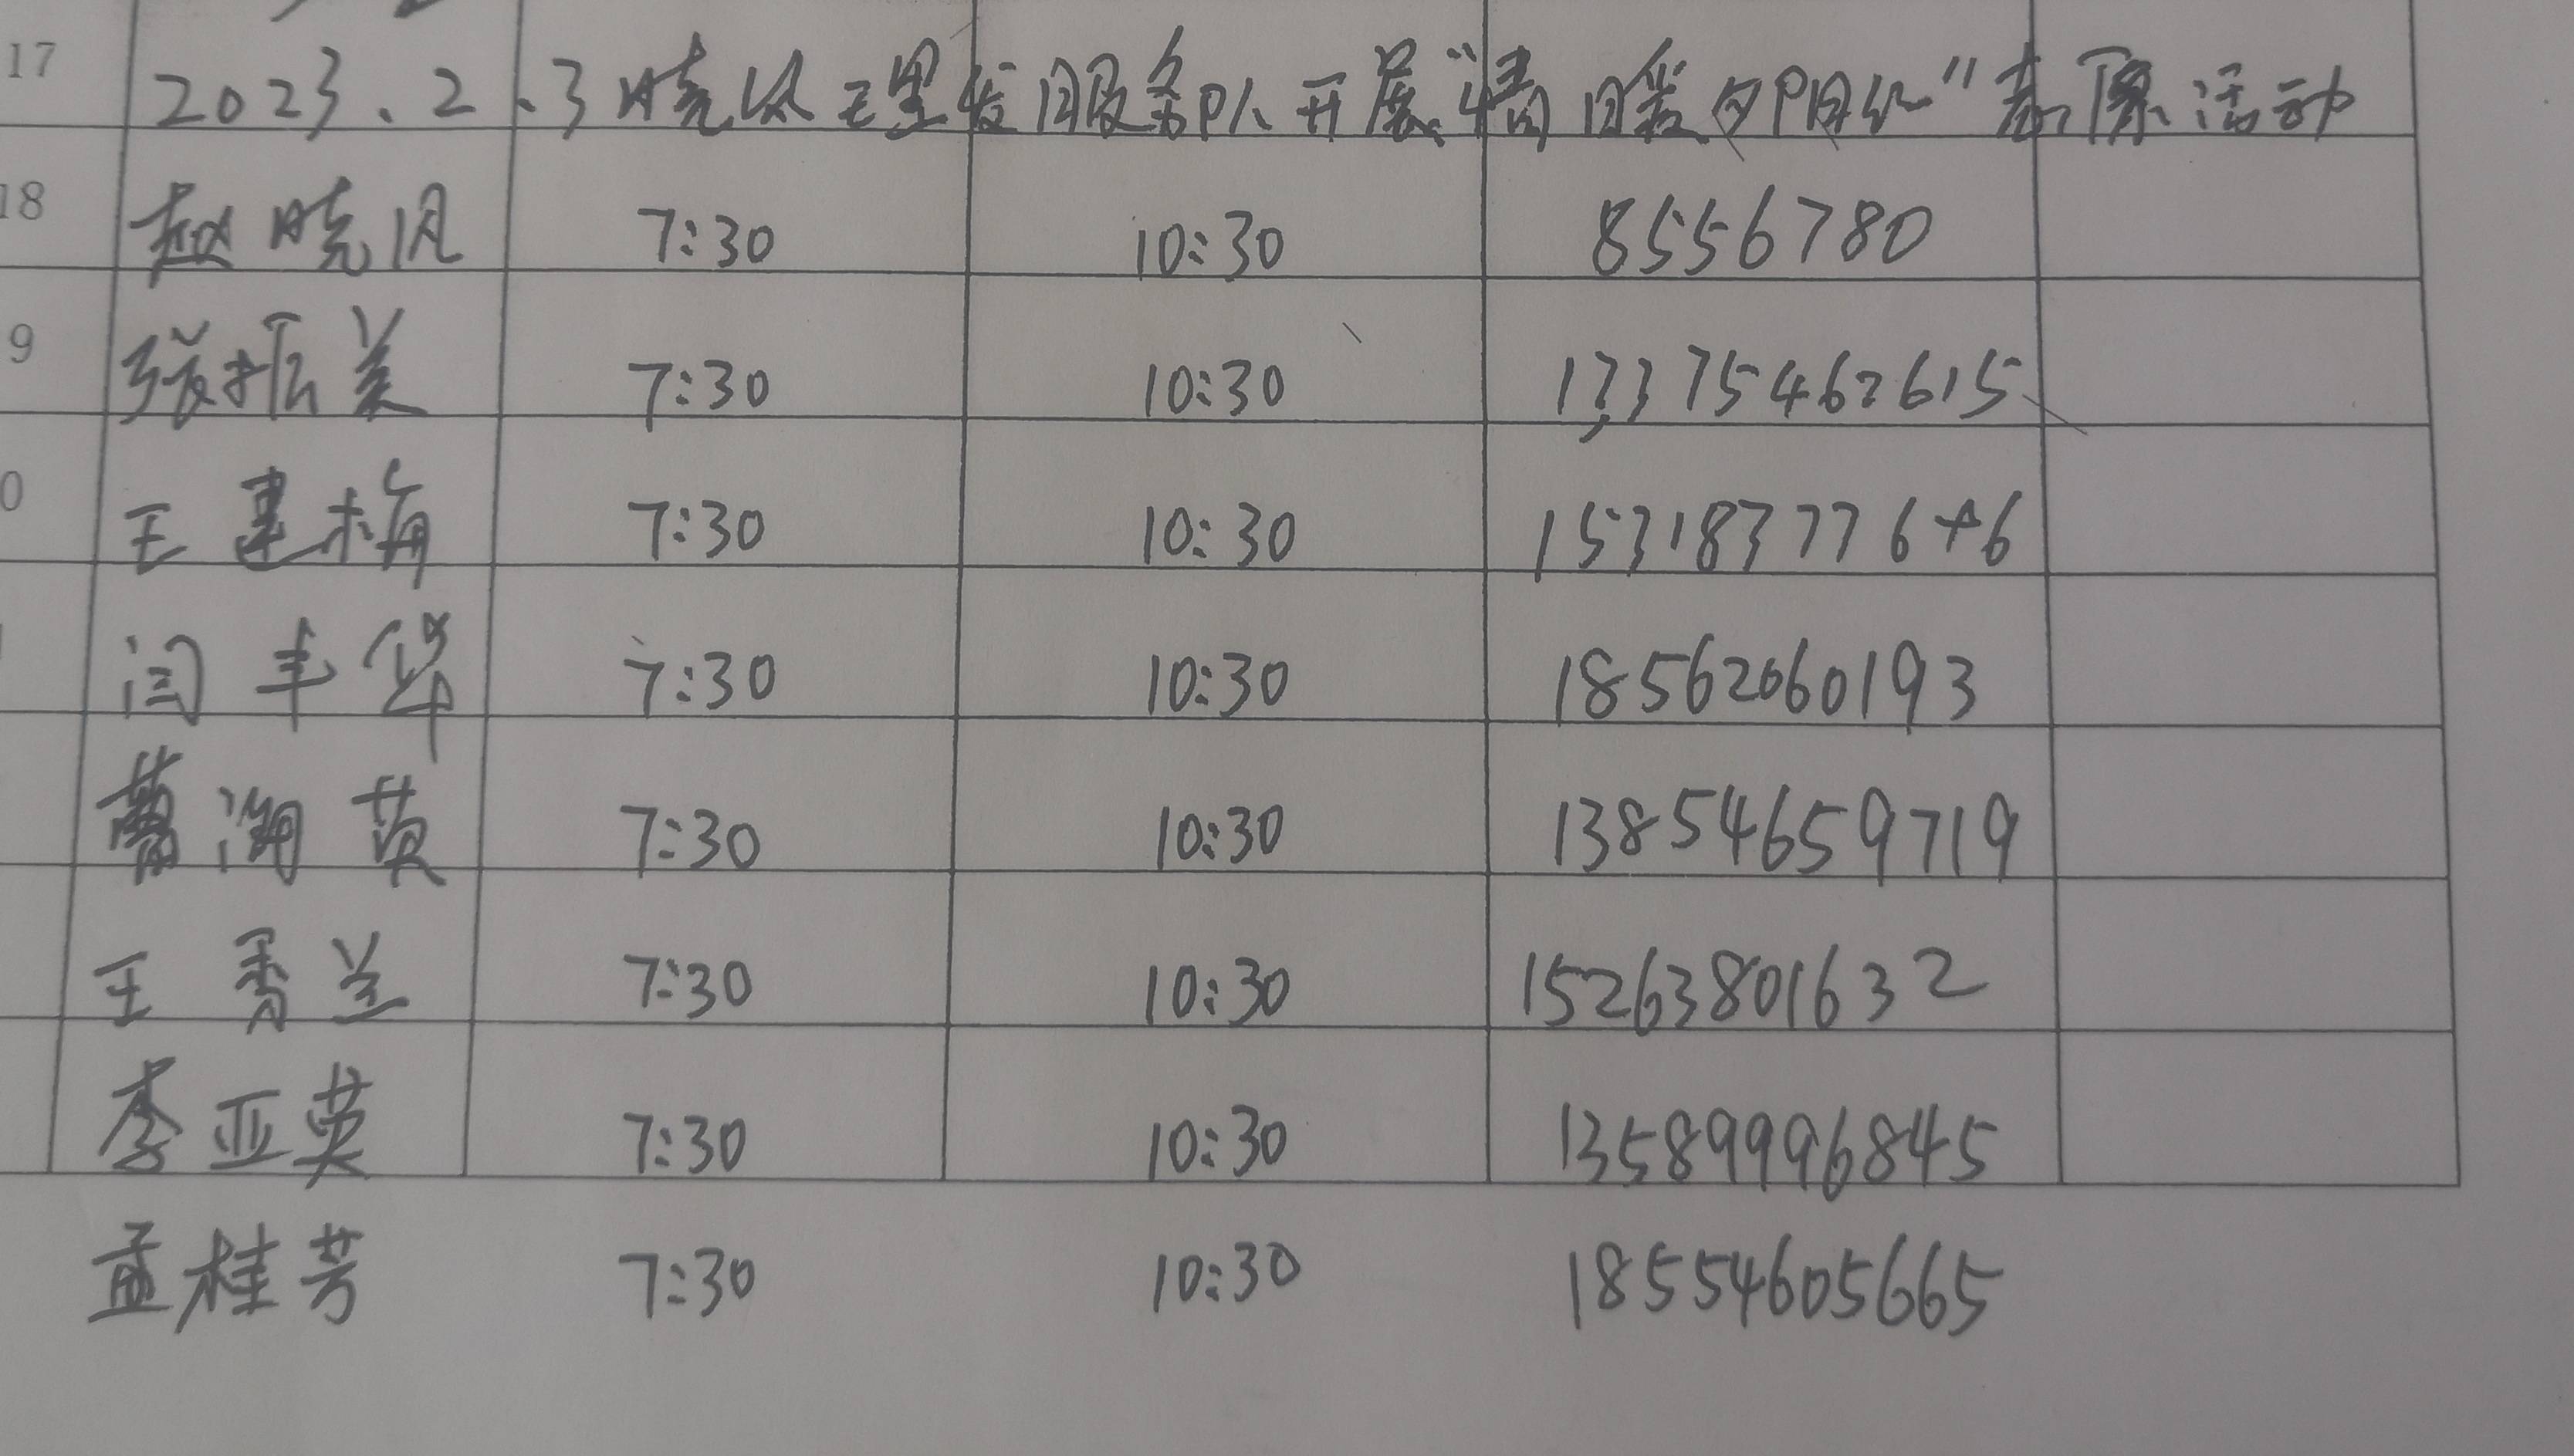 17 2023.2.3晓风理发服务队开展“情暖夕阳红”志愿活动
18 赵晓风 7:30 10:30 8556780
9 张振美 7:30 10:30 13375462615
0 王建梅 7:30 10:30 153183776
闫丰华 7:30 10:30 18562060193
7:30 10:30 13854659719
王秀兰 7:30 10:30 15263801632
李亚英 7:30 10:30 13589996845
孟桂芳 7:30 10:30 18554605665